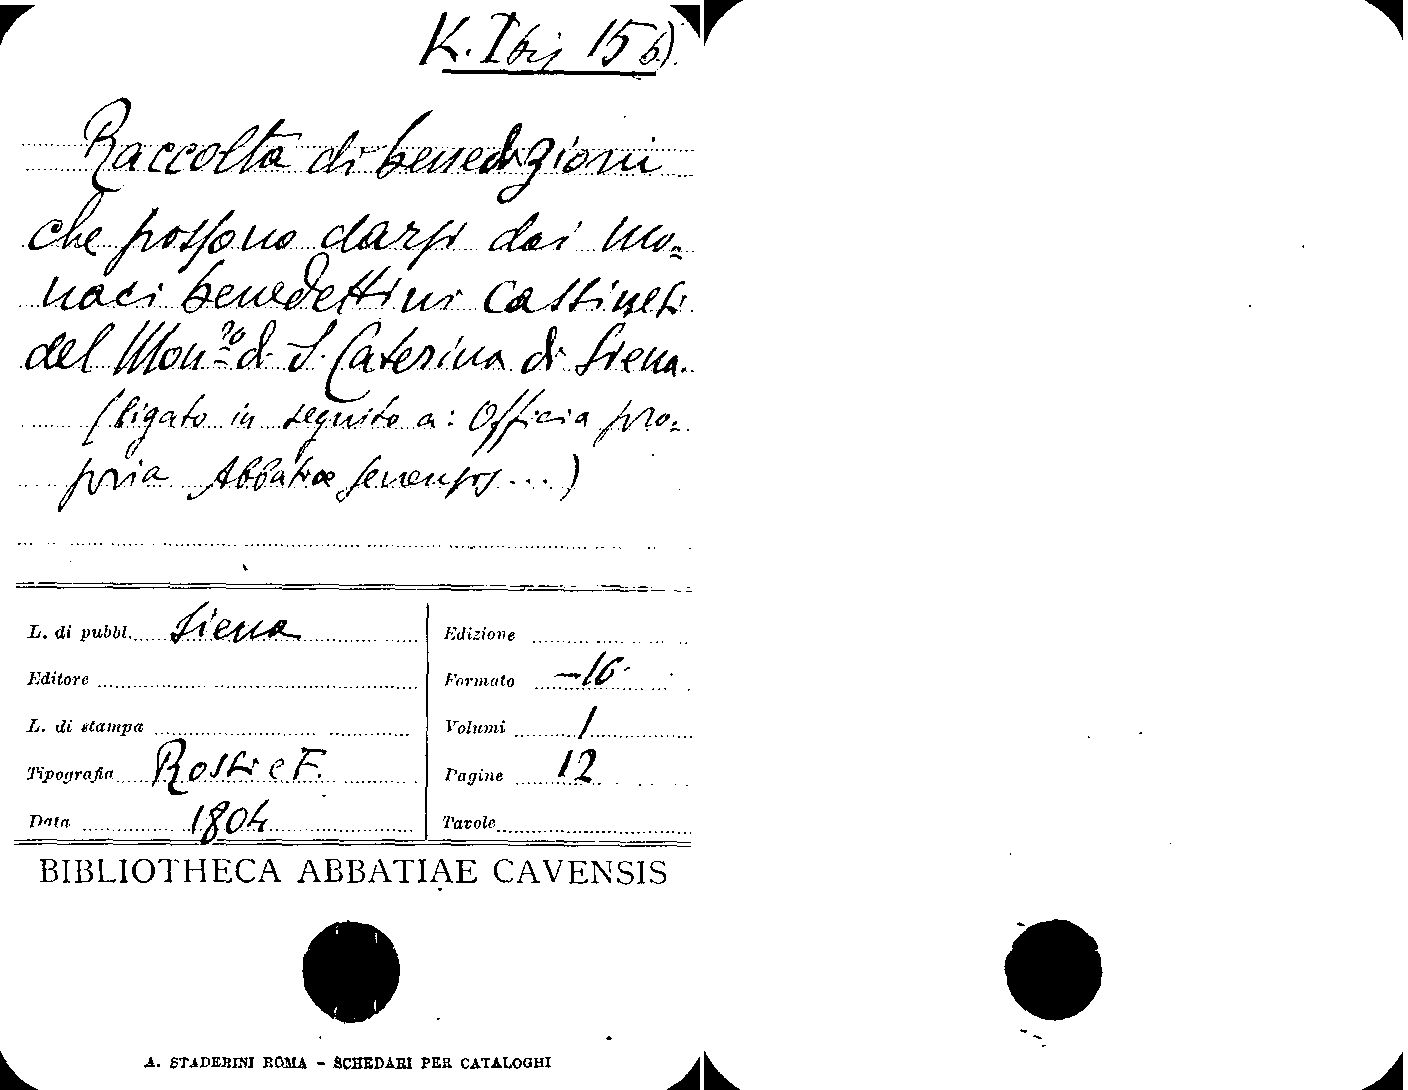 K. I bis 15 b).
Raccolta di benedizioni
che possono darsi dai mo=
naci benedettini Cassinesi
del Mon.ro di S. Caterina di Siena.
(ligato in seguito a: Officia pro=
pria Abbatiae senensis...)
L. di pubbl. Siena
Editore
L. di stampa
Tipografia Rossi e F.
Data 1804
Edizione
Formato -16
Volumi 1
Pagine 12
Tavole
BIBLIOTHECA ABBATIAE CAVENSIS
A. STADERINI ROMA - SCHEDARI PER CATALOGHI